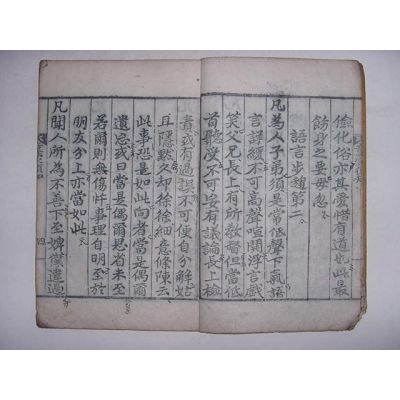 儉化俗亦其愛惜有道也此最
飭身之要毋忽
語言步趨第二
凡為人子弟須是常低聲下氣語
言詳緩不可高聲喧鬨浮言戲
笑父兄長上有所教督但當低
首聽受不可妄有議論長上檢
責或有過誤不可便自分解姑
且隱默久却徐徐細意條陳云
此事恐是如此向者當是偶爾
遺忘或曰當是偶爾思省未至
若爾則無傷忤事理自明至於
朋友分上亦當如此
凡聞人所為不善下至婢僕違過